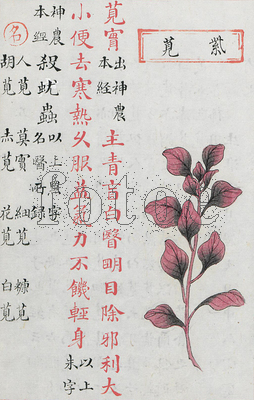 紫莧
莧實 出神農本經 主青盲白瞖明目除邪利大
小便去寒熱久服益氣力不饑輕身 以上朱字
神農本經 殺蚘蟲 以上黑字名醫所錄
名 人莧 莫實 細莧 糠莧
胡莧 赤莧 花莧 白莧
fotoe